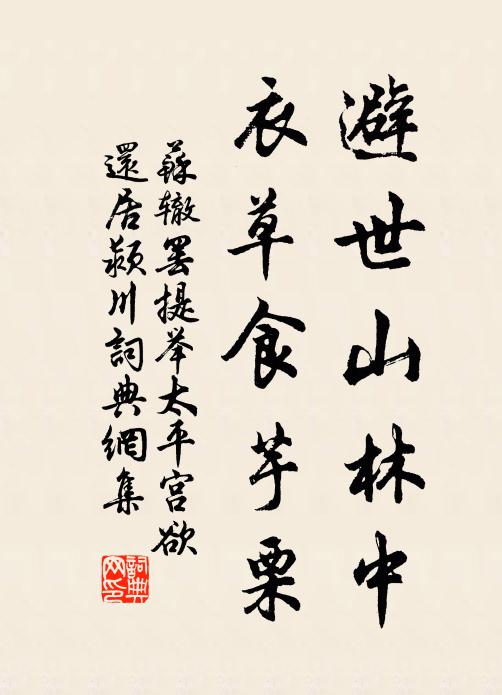 避世山林中
衣草食芋栗
蘇辙罢提举太平宫欲
還居颍川詞典網集
詞典
网印